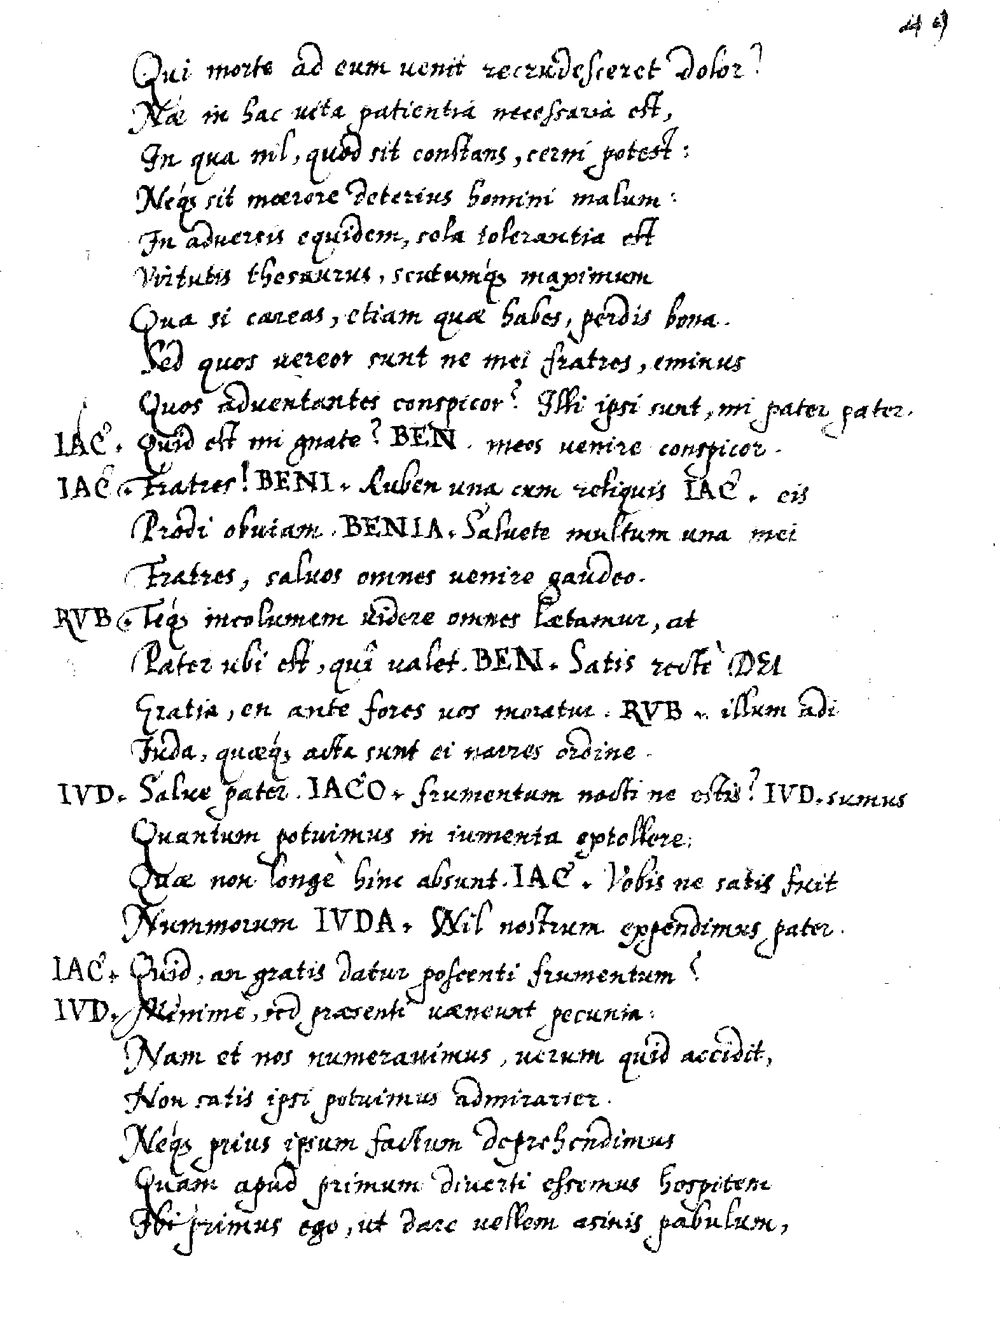 49
Qui morte ad eum uenit recrudesceret dolor?
Næ in hac uita patientia necessaria est,
In qua nil, quod sit constans, cerni potest:
Neq; sit mœrore deterius homini malum:
In aduersis equidem, sola tolerantia est
Virtutis thesaurus, scutumq; maximum
Qua si careas, etiam quæ habes, perdis bona.
Sed quos uereor sunt ne mei fratres, eminus
Quos aduentantes conspicor? Illi ipsi sunt, mi pater pater.
IAC. Quid est mi gnate? BEN. meos uenire conspicor.
IAC. Fratres! BENI. Ruben una cum reliquis IAC. eis
Prodi obuiam. BENIA. Saluete multum una mei
Fratres, saluos omnes uenire gaudeo.
RVB. Teq; incolumem uidere omnes lætamur, at
Pater ubi est, quî ualet. BEN. Satis rectè DEI
Gratia, en ante fores uos moratur. RVB. illum adi
Iuda, quæq; acta sunt ei narres ordine.
IVD. Salue pater. IACO. frumentum nacti ne estis? IVD. sumus
Quantum potuimus in iumenta extollere;
Quæ non longè hinc absunt. IAC. Vobis ne satis fuit
Nummorum IVDA. Nil nostrum expendimus pater.
IAC. Quid, an gratis datur poscenti frumentum?
IVD. Minimè, sed præsenti uæneunt pecunia:
Nam et nos numerauimus, uerum quid accidit,
Non satis ipsi potuimus admirarier.
Neq; prius ipsum factum deprehendimus
Quam apud primum diuerti essemus hospitem
Ibi primus ego, ut dare uellem asinis pabulum,